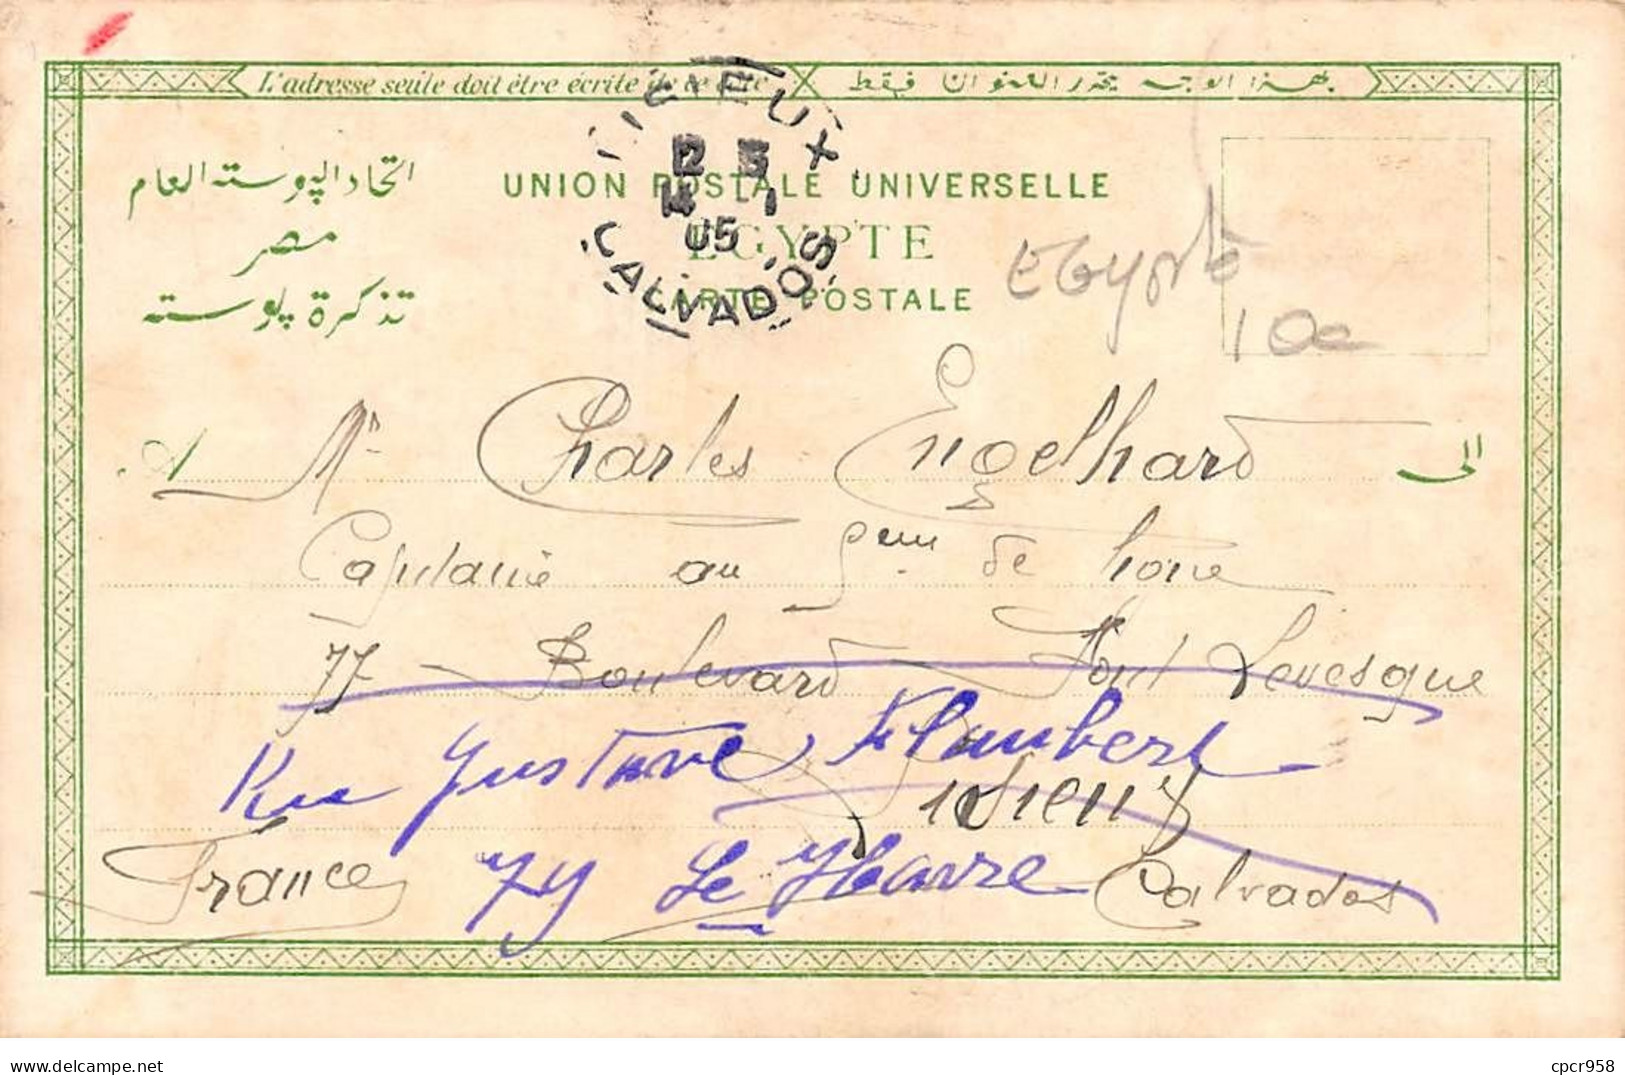 L'adresse seule doit être écrite de ce côté
بهذا الوجه يحرر العنوان فقط
اتحاد البوسته العام
مصر
تذكرة بوسته
UNION POSTALE UNIVERSELLE
EGYPTE
CARTE POSTALE
LISIEUX
12 5
14 1
05
CALVADOS
Egypte
10e
A Mr Charles Engelhard الى
Capitaine au de
77 Boulevard Pont Levesque
Rue Gustave Flaubert
Lisieux
France 79 Le Havre Calvados
Delcampe.net
cpcr958